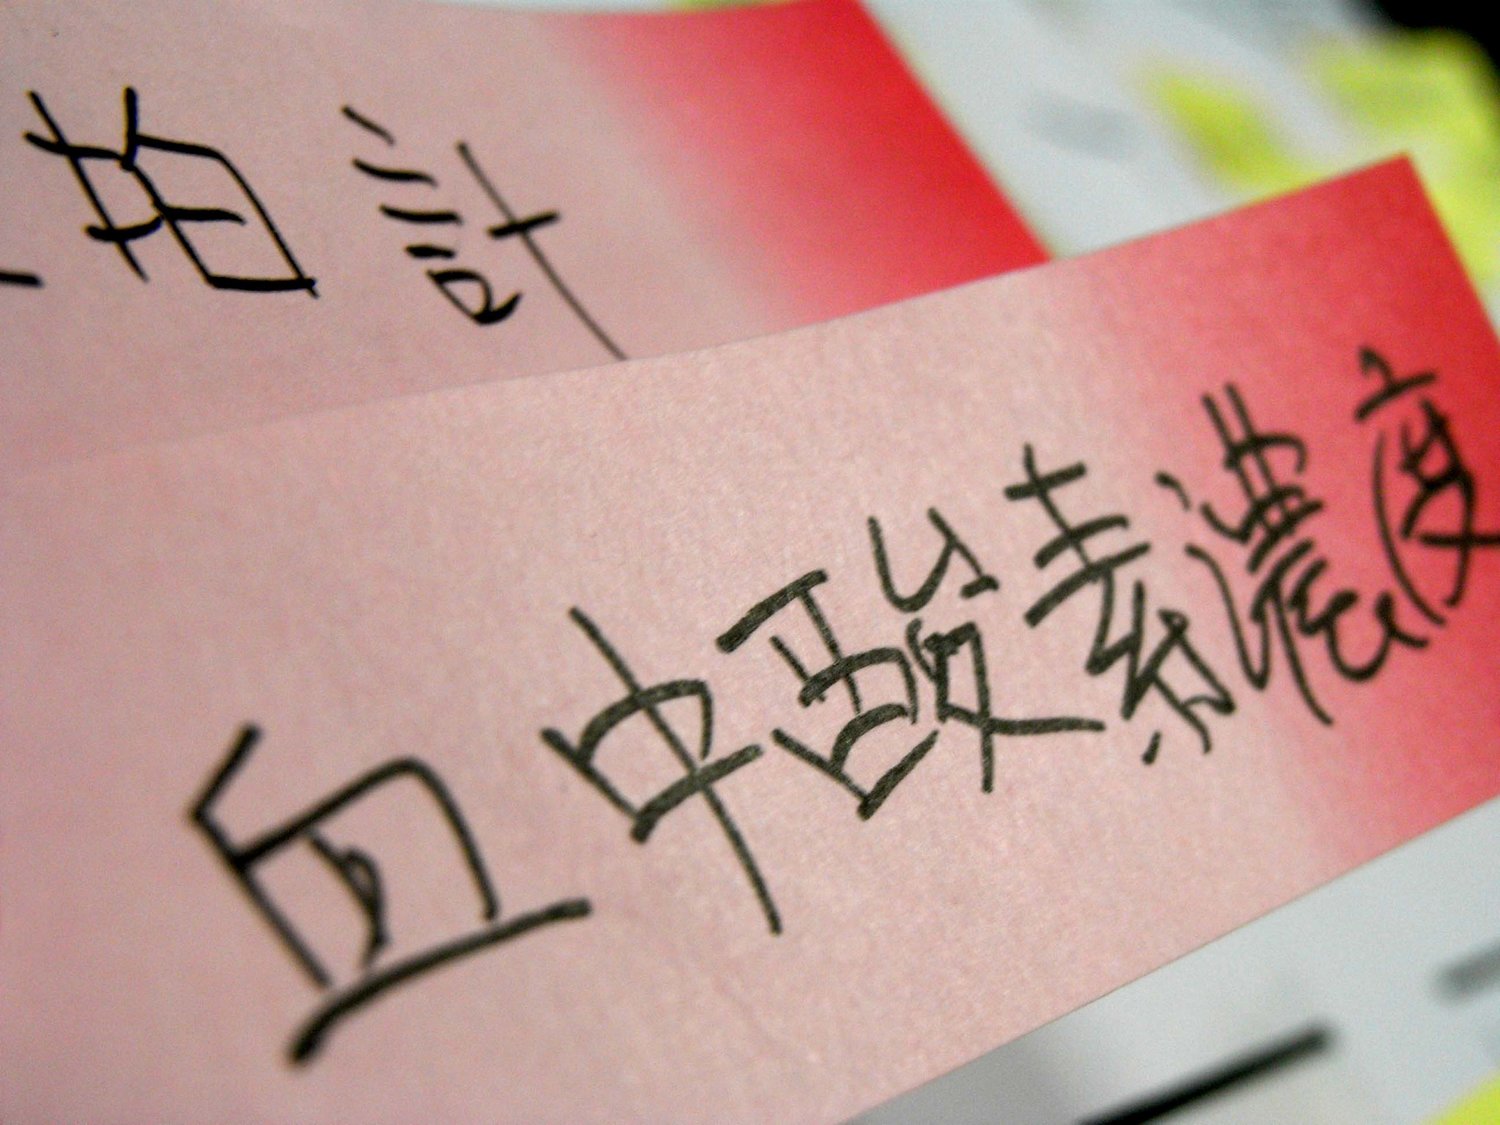 拍計
血中酸素濃度